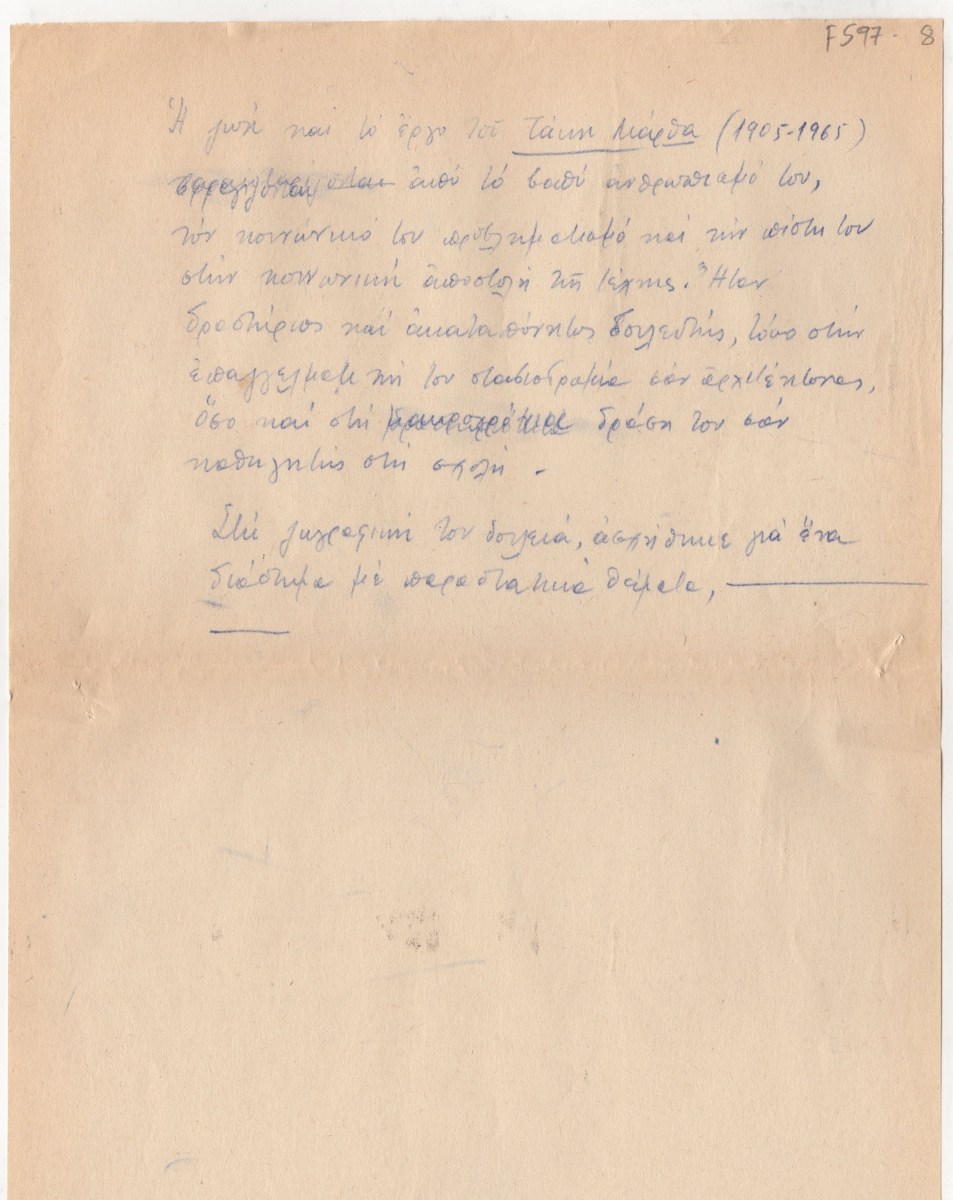 F597 - 8
Ἡ ζωή καί τό ἔργο τοῦ Τάκη Μάρθα (1905-1965)
ἀπό τό βαθύ ἀνθρωπισμό του,
τόν κοινωνικό του προβληματισμό καί τήν πίστη του
στήν κοινωνική ἀποστολή τῆς τέχνης. Ἦταν
δραστήριος καί ἀκαταπόνητος δουλευτής, τόσο στήν
ἐπαγγελματική του σταδιοδρομία σάν ἀρχιτέκτονας,
ὅσο καί στή δράση του σάν
καθηγητής στή σχολή -
Στή ζωγραφική του δουλειά, ἀσκήθηκε γιά ἕνα
διάστημα μέ παραστατικά θέματα,